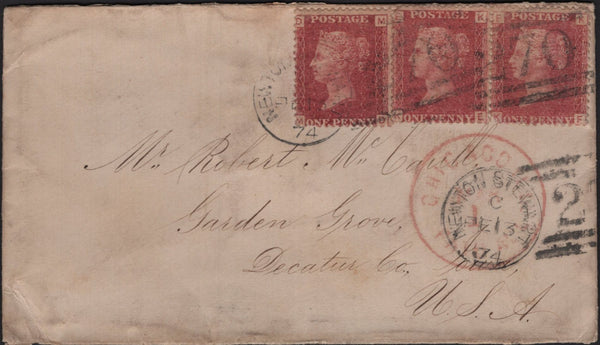 POSTAGE POSTAGE POSTAGE
ONE PENNY ONE PENNY ONE PENNY
NEWTON
74
270
Mr Robert
Garden Grove,
Decatur Co, Iowa,
U.S.A.
CHICAGO
NEWTON STEWART
C
DE 13
74
2